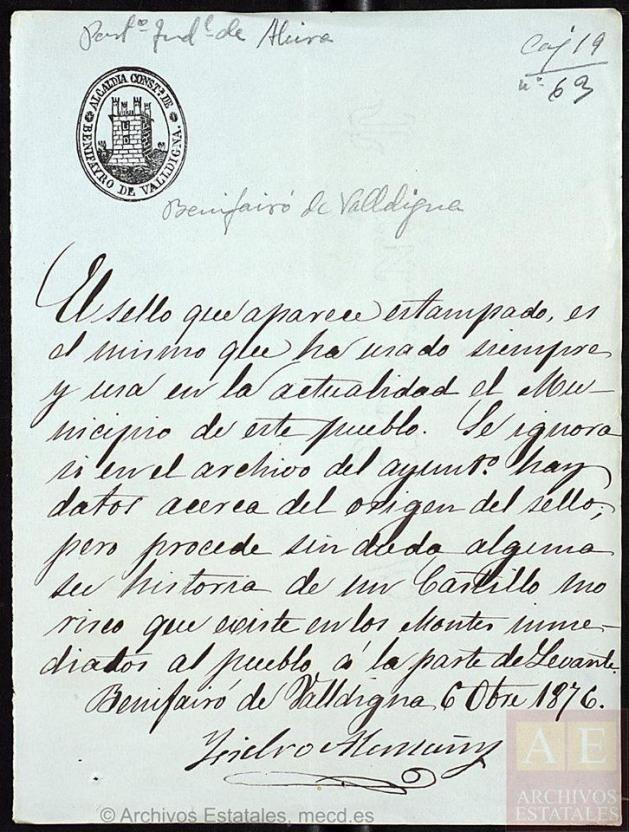 Part.º Jud.l de Alcira
Caj 19
nº 63
ALCALDIA CONST.L DE
BENIFAYRO DE VALLDIGNA.
Benifairó de Valldigna
El sello que aparece estampado, es
el mismo que ha usado siempre
y usa en la actualidad el Mu-
nicipio de este pueblo. Se ignora
si en el archivo del ayunt.º hay
datos acerca del origen del sello;
pero procede sin duda alguna
su historia de un Castillo mo
risco que existe en los Montes inme-
diatos al pueblo á la parte de Levante.
Benifairó de Valldigna 6 Obre 1876.
Isidro
A E
ARCHIVOS
ESTATALES
© Archivos Estatales, mecd.es